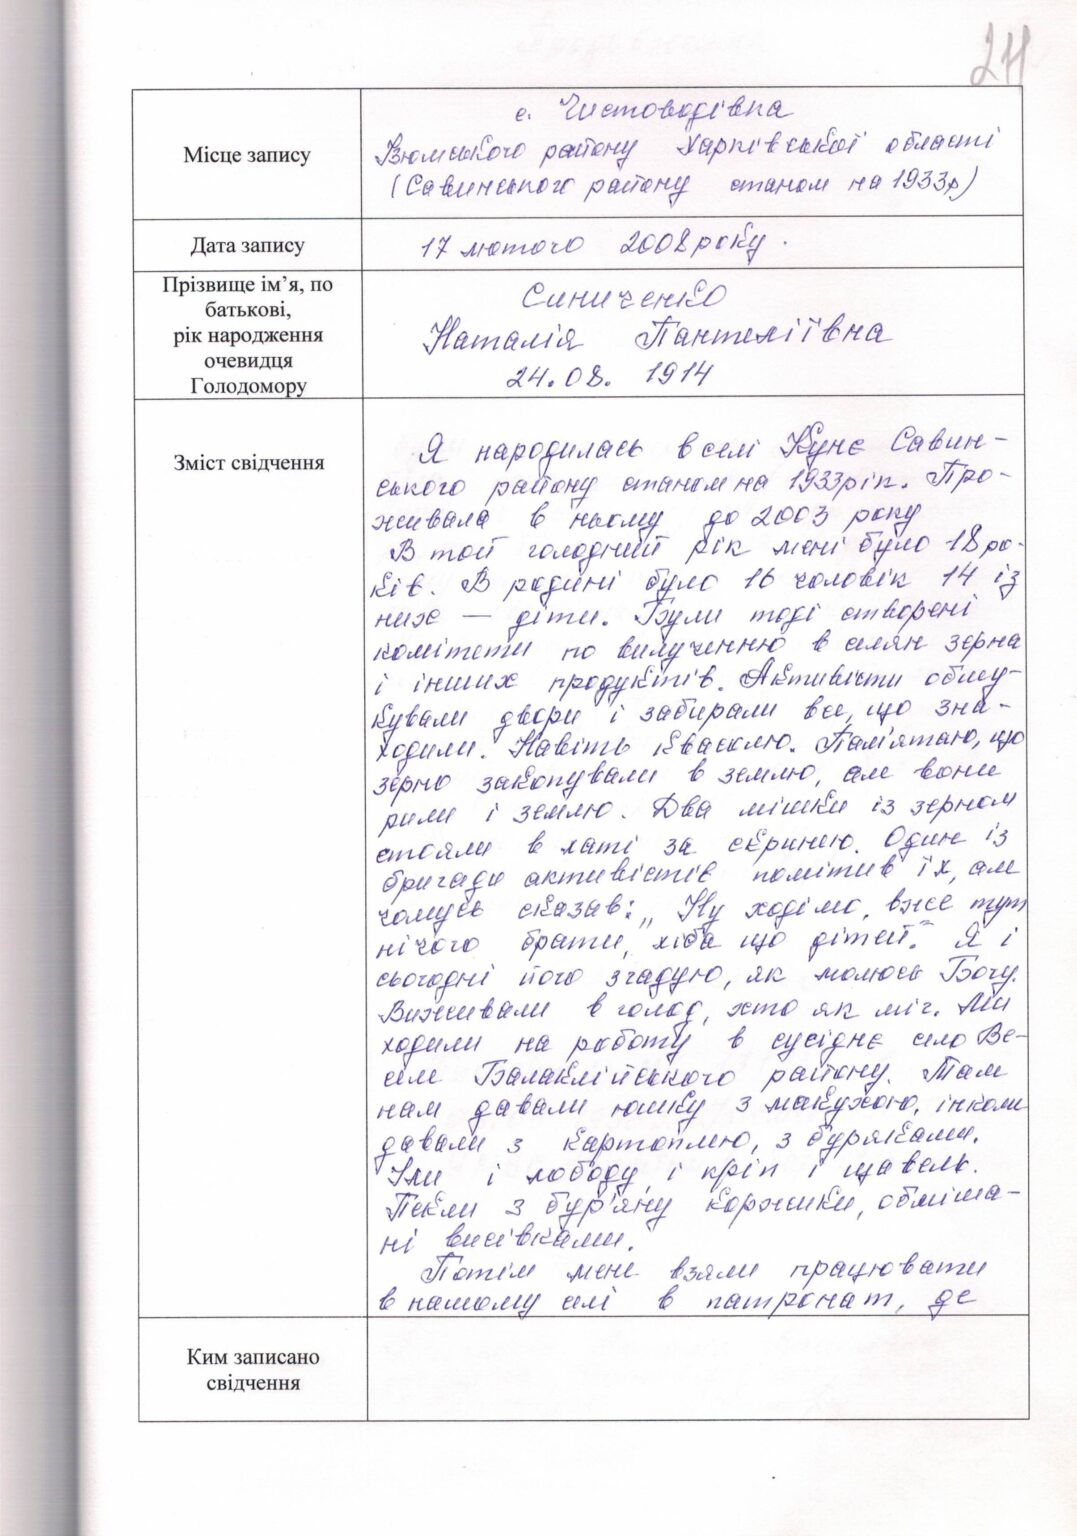 211
Місце запису
с. Чистоводівка
Ізюмського району Харківської області
(Савинського району станом на 1933р)
Дата запису
17 лютого 2008 року.
Прізвище ім’я, по
батькові,
рік народження
очевидця
Голодомору
Синиченко
Наталія Пантеліївна
24.08. 1914
Зміст свідчення
Я народилась в селі Кунє Савин-
ського району станом на 1933рік. Про-
живала в ньому до 2003 року
В той голодний рік мені було 18 ро-
ків. В родині було 16 чоловік 14 із
них — діти. Були тоді створені
комітети по вилученню в селян зерна
і інших продуктів. Активісти обшу-
кували двори і забирали все, що зна-
ходили. Навіть квасолю. Пам'ятаю, що
зерно закопували в землю, але вони
рили і землю. Два мішки із зерном
стояли в хаті за скринею. Один із
бригади активістів помітив їх, але
чомусь сказав: „Ну ходімо, вже тут
нічого брати, хіба що дітей." Я і
сьогодні його згадую, як молюсь Богу.
Виживали в голод, хто як міг. Ми
ходили на роботу в сусіднє село Ве-
селе Балаклійського району. Там
нам давали юшку з макухою, інколи
давали з картоплею, з буряками.
Їли і лободу, і кріп і щавель.
Пекли з бур'яну коржики, обміша-
ні висівками.
Потім мене взяли працювати
в нашому селі в патронат, де
Ким записано
свідчення